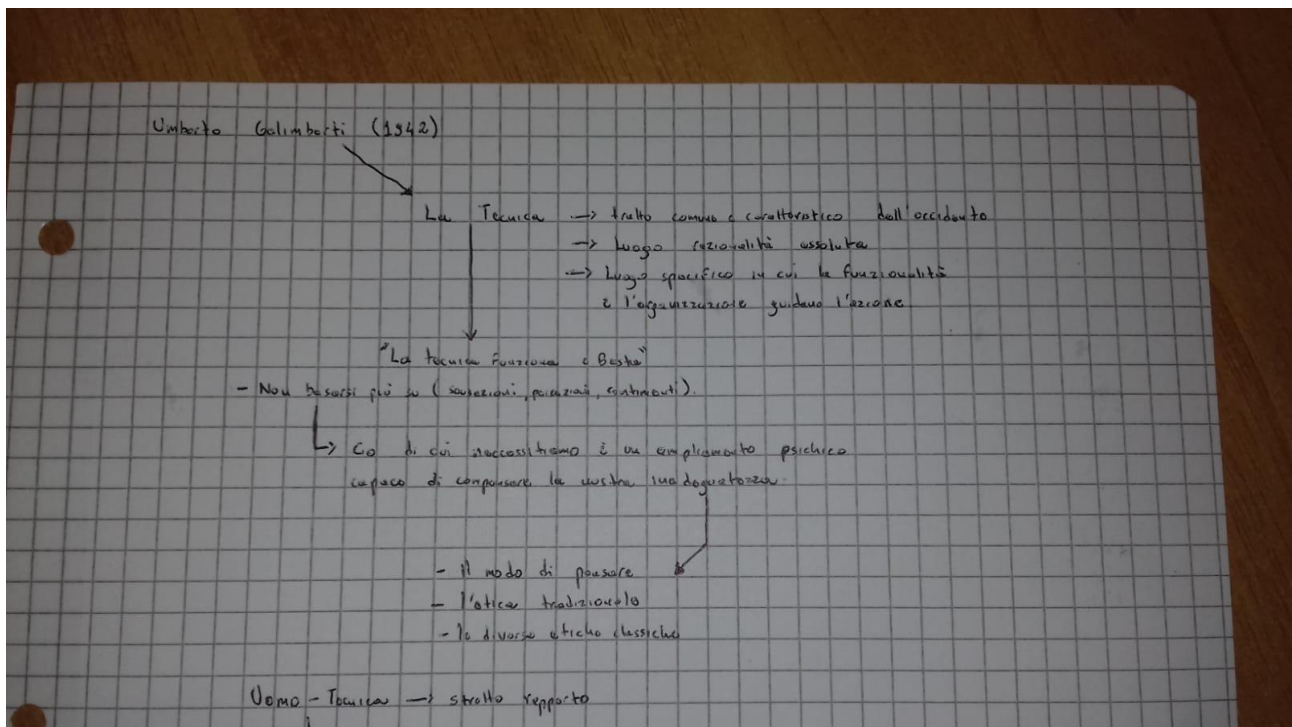 Umberto Galimberti (1942)
La Tecnica -> tratto comune e caratteristico dell'occidente
-> Luogo razionalità assoluta
-> Luogo specifico in cui la funzionalità
e l'organizzazione guidano l'azione
"La tecnica Funziona e Basta"
- Non basarsi più su (sensazioni, percezioni, sentimenti).
-> Ciò di cui neccessitiamo è un ampliamento psichico
capace di compensare la nostra inadeguatezza.
- Il modo di pensare
- l'etica tradizionale
- le diverse etiche classiche
Uomo - Tecnica -> stretto rapporto